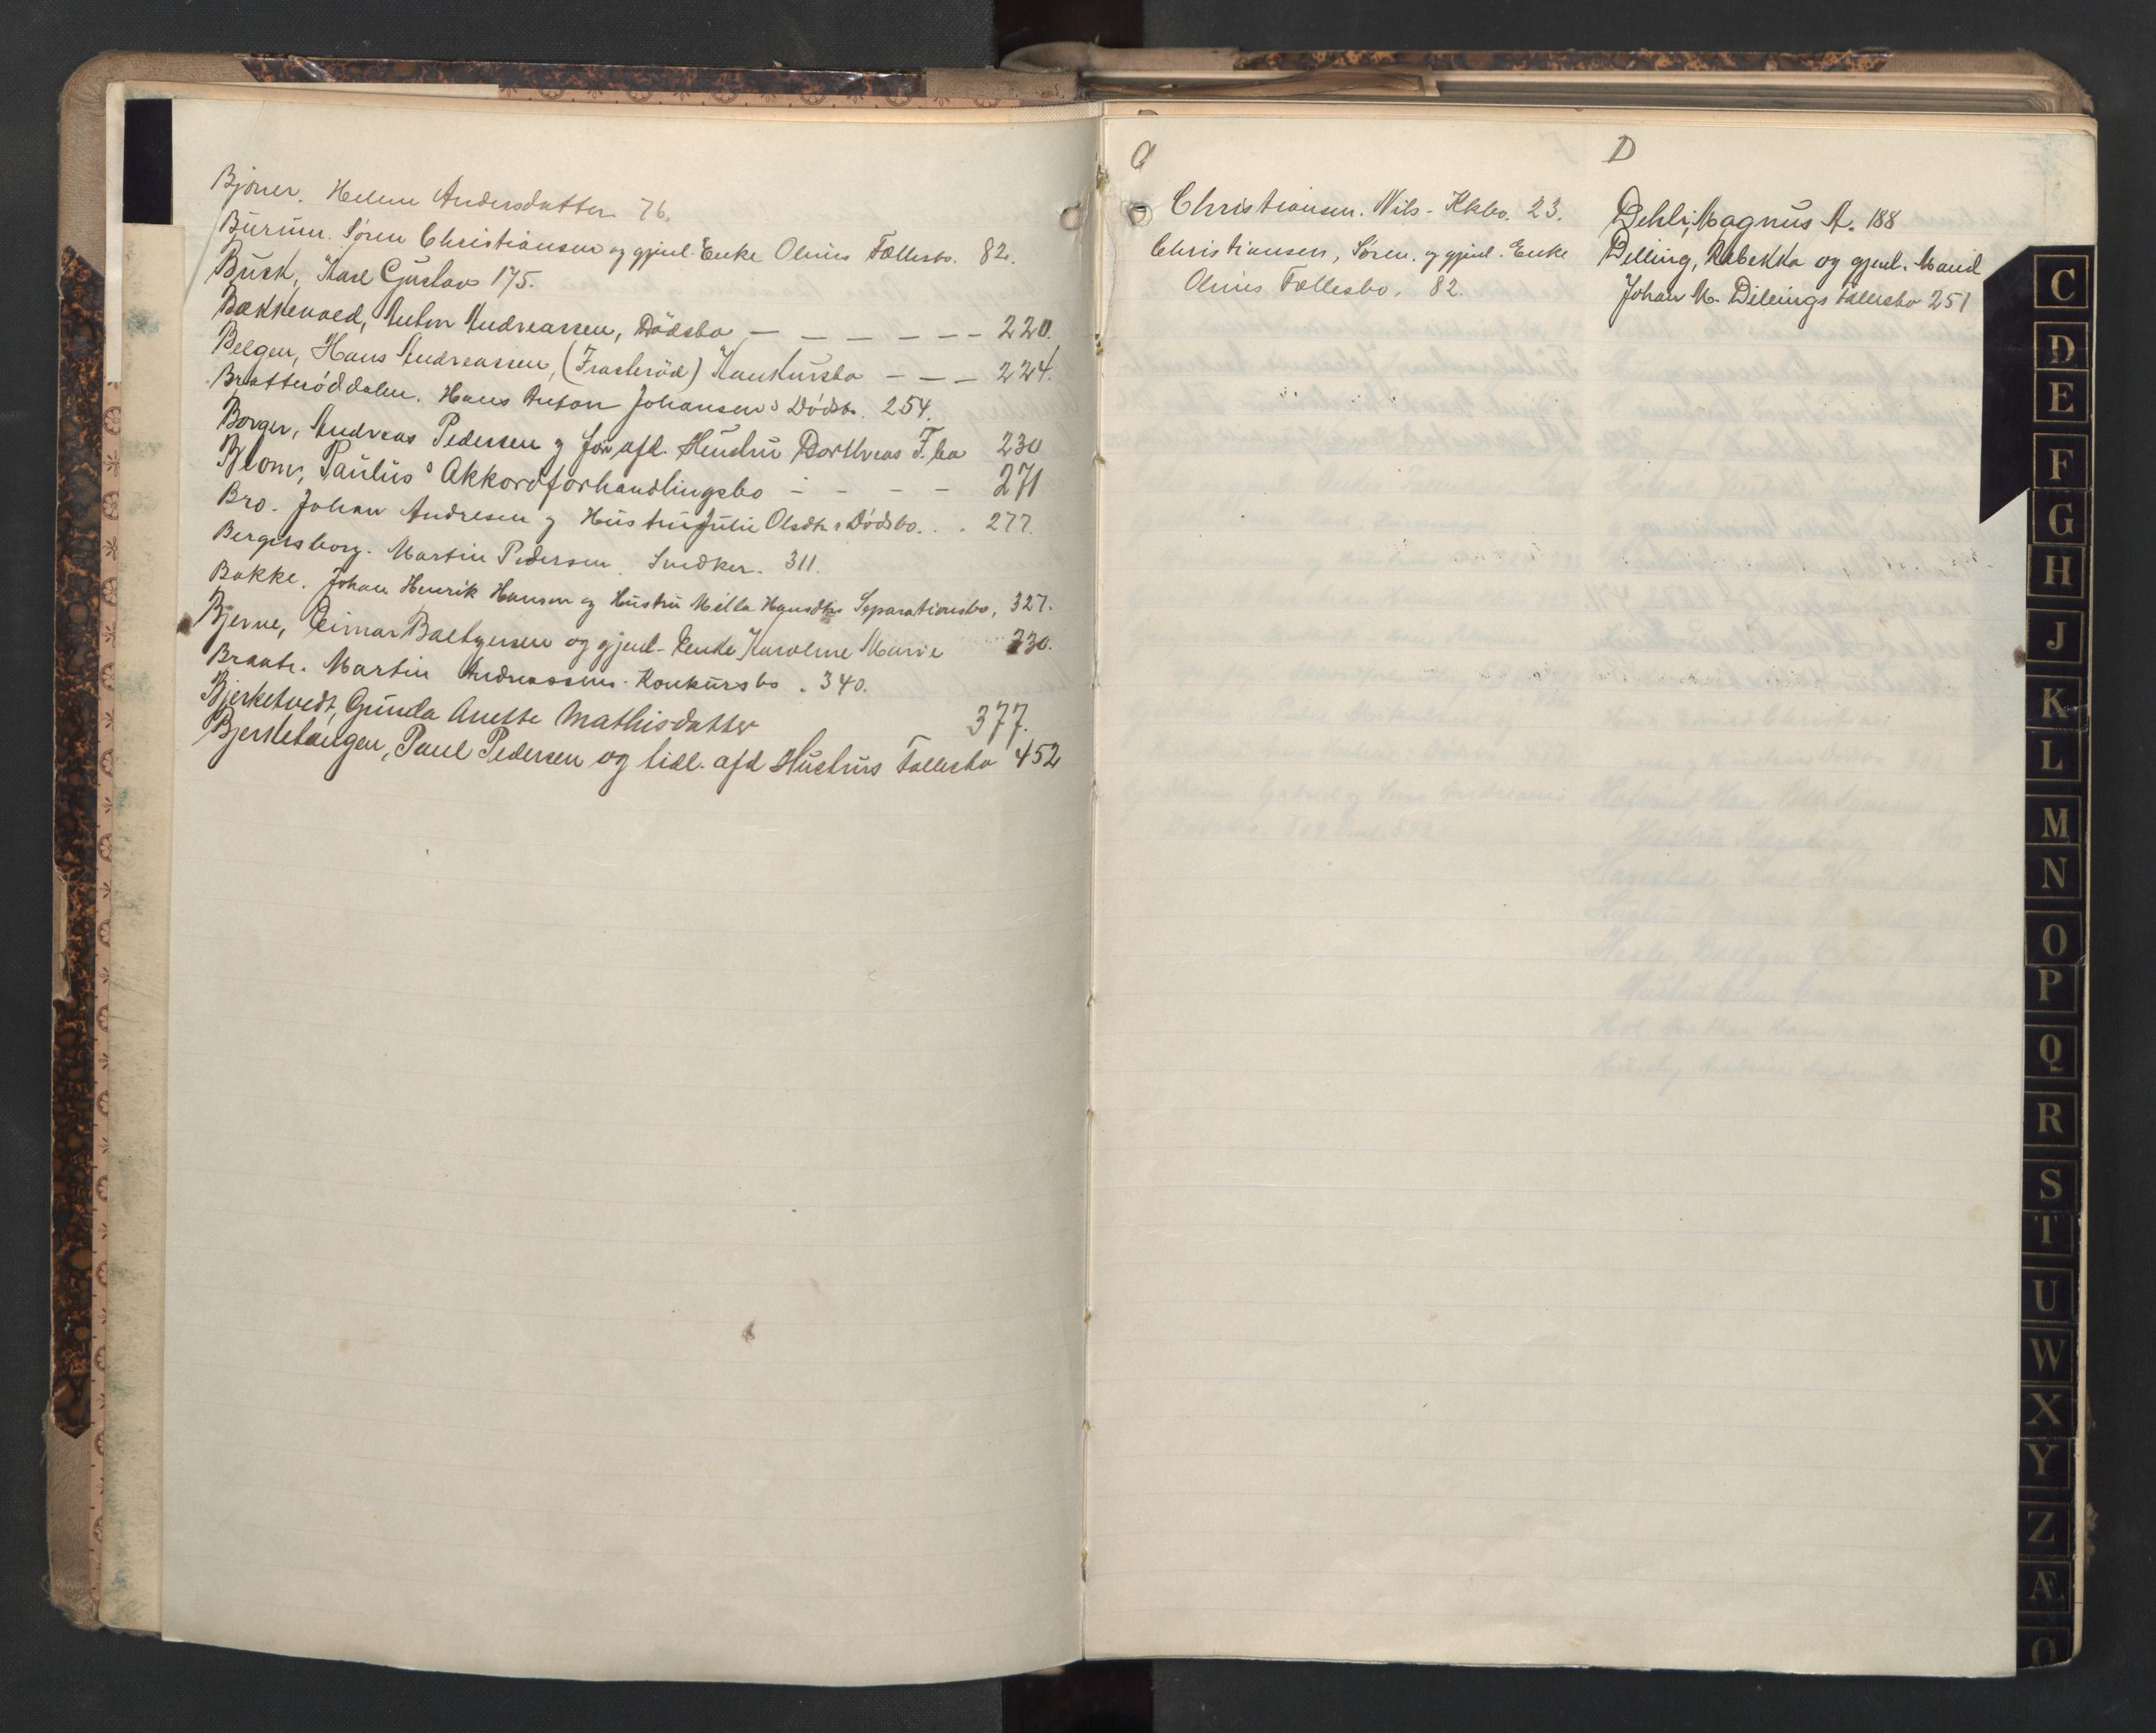 Bjöner. Helene Andersdatter 76.
Burum. Søren Christiansen og gjenl. Enke Olines Fællesbo. 82.
Busk, Karl Gustav 175.
Bækkevold, Anton Andreassen, Dödsbo — — — — — — 220.
Belgen, Hans Andreassen, (Frasteröd) Konkursbo — — — 224.
Bratterøddalen. Hans Anton Johansens Dødsbo. 254.
Borger, Andreas Pedersen og før afd. Hustru Dortheas F.bo 230
Blom, Paulus' Akkordforhandlingsbo - - - - 271
Bro. Johan Andresen og Hustru Julie Olsdtrs Dødsbo. . . 277.
Bergersborg. Martin Pedersen. Snedker. 311.
Bakke. Johan Henrik Hansen og Hustru Milla Hansdtrs Separationsbo, 327.
Bjerne, Einar Balbyersen og gjenl. Enke Karoline Marie 330.
Braate. Martin Andreassens Konkursbo. 340.
Bjerketvedt, Gunda Anette Mathisdatter 377.
Bjerketangen, Paul Pedersen og tidl. afd Hustrus Fællesbo 452
C
Christiansen. Nils - Kkbo. 23.
Christiansen, Søren, og gjenl. Enke
Olines Fællesbo. 82.
D
Dehli, Magnus A. 188
Dilling, Rebekka og gjenl. Mand
Johan M. Dillings Fællesbo 251
C
D
E
F
G
H
J
K
L
M
N
O
P
Q
R
S
T
U
W
X
Y
Z
Æ